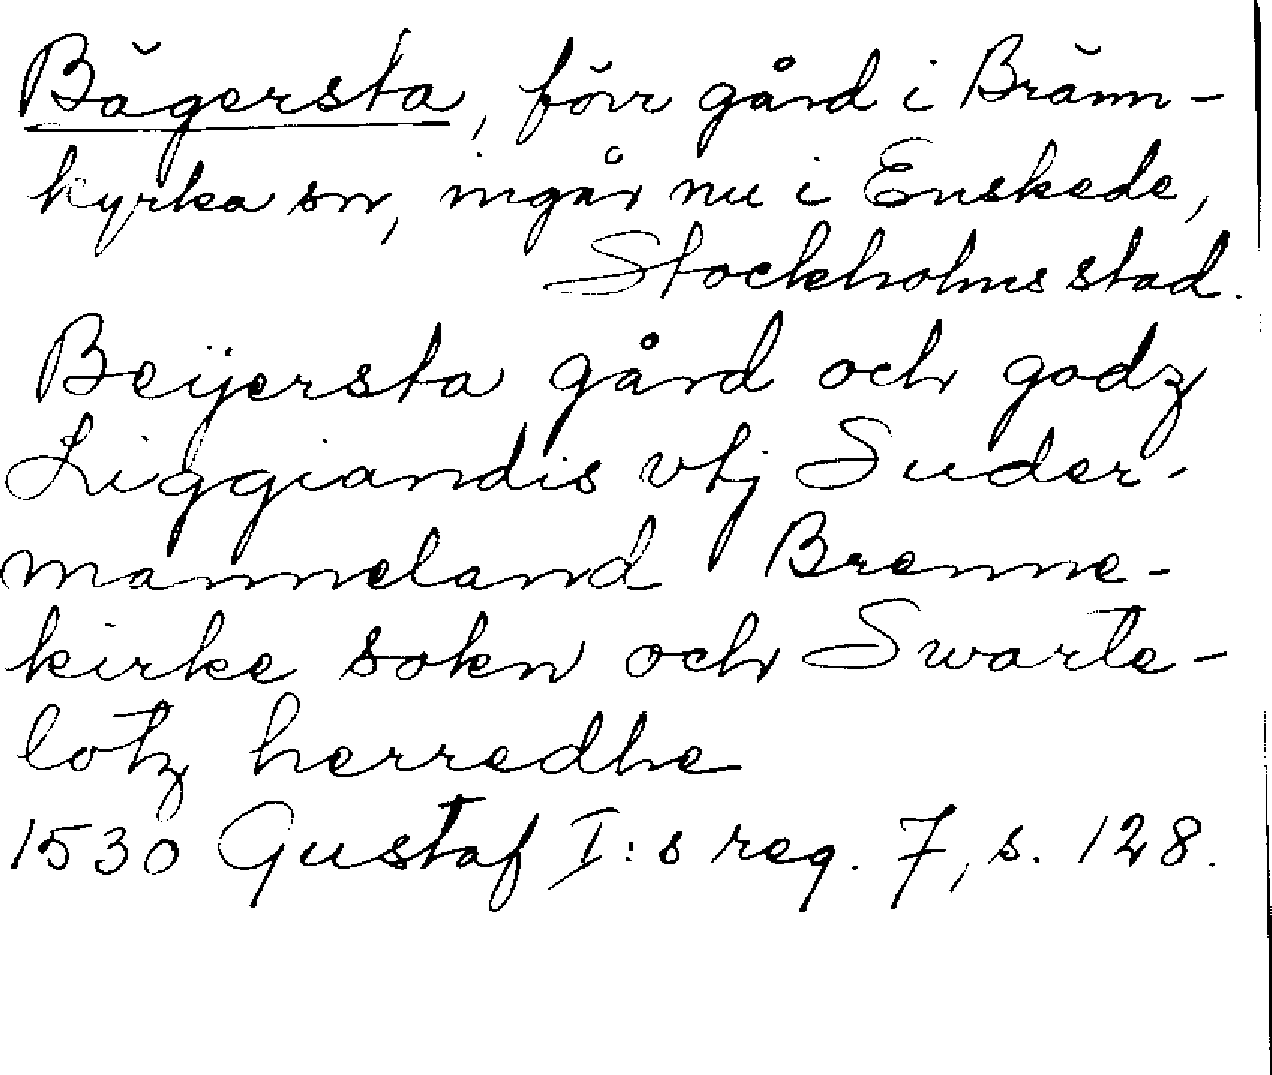 Bägersta, förr gård i Bränn-
kyrka sn, ingår nu i Enskede,
Stockholms stad.
Beijersta gård och godz
Liggiandis vtj Suder-
manneland Brenne-
kirke sokn och Swarte-
lotz herredhe
1530 Gustaf I:s reg. 7, s. 128.